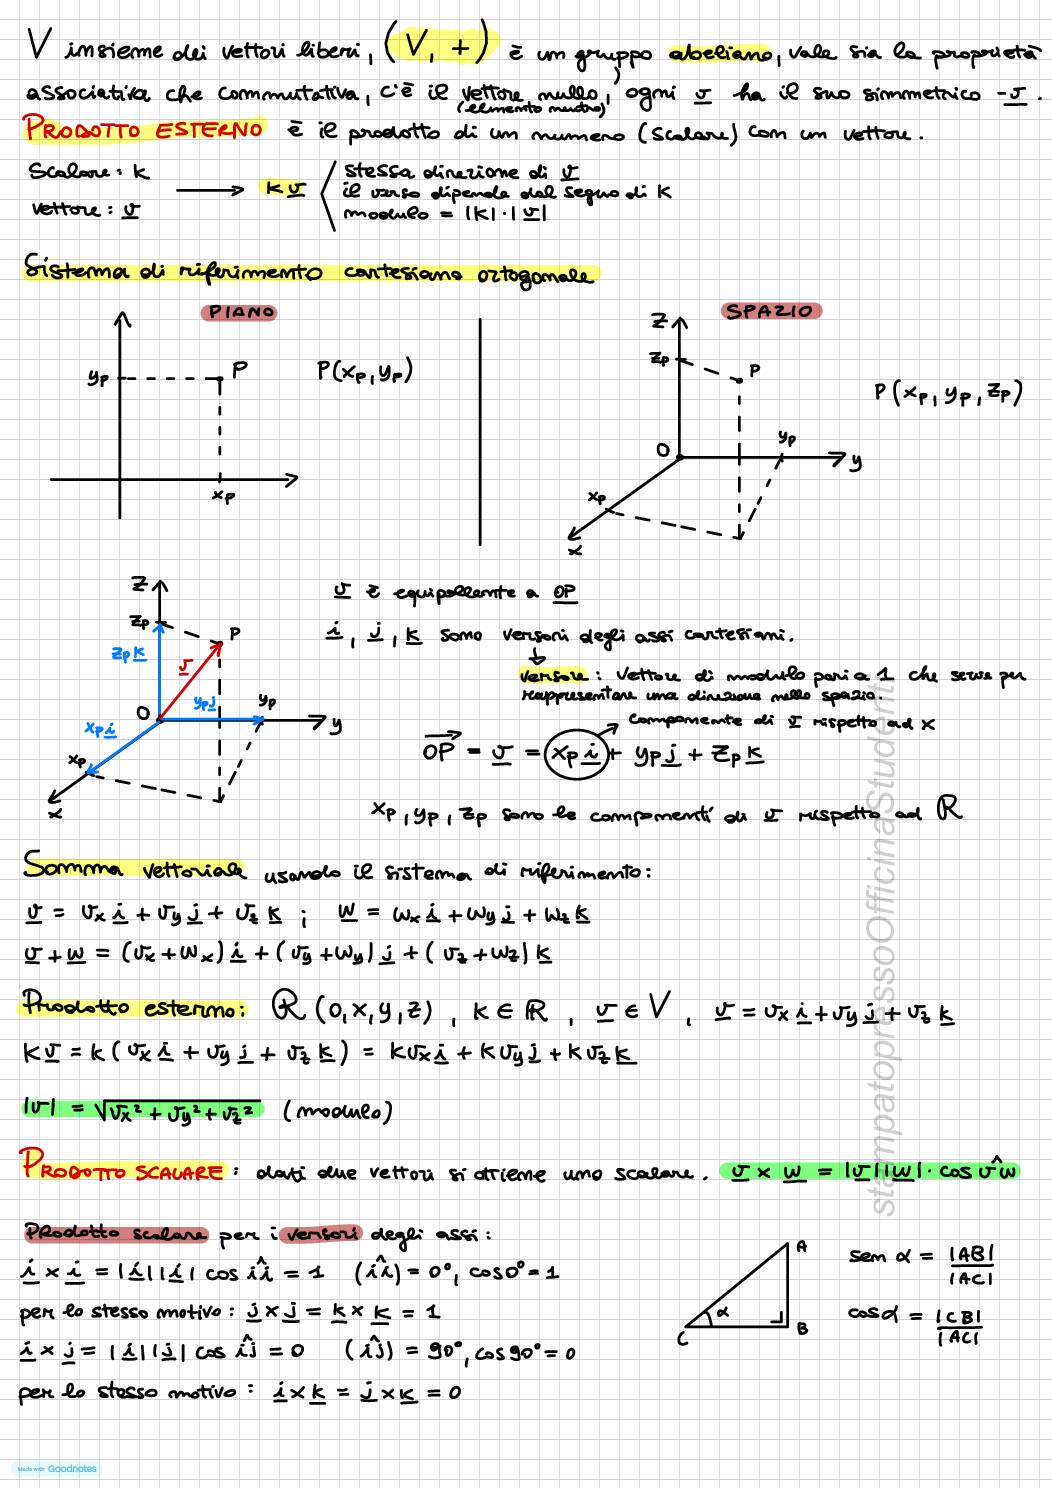 V insieme dei vettori liberi, (V, +) è un gruppo abeliano, vale sia la proprietà
associativa che commutativa, c'è il vettore nullo, ogni v ha il suo simmetrico -v.
(elemento neutro)
PRODOTTO ESTERNO è il prodotto di un numero (scalare) con un vettore.
Scalare: k
vettore: v
k v
stessa direzione di v
il verso dipende dal segno di k
modulo = |k|·|v|
Sistema di riferimento cartesiano ortogonale
PIANO
yp
P
P(xp, yp)
xp
SPAZIO
z
zp
P
P(xp, yp, zp)
O
yp
y
xp
x
z
zp
P
zp k
v
O
yp j
yp
y
xp i
xp
x
v è equipollente a OP
i, j, k sono versori degli assi cartesiani.
versore: vettore di modulo pari a 1 che serve per
rappresentare una direzione nello spazio.
componente di v rispetto ad x
OP = v = xp i + yp j + zp k
xp, yp, zp sono le componenti di v rispetto ad R
Somma vettoriale usando il sistema di riferimento:
v = vx i + vy j + vz k ; w = wx i + wy j + wz k
v + w = (vx + wx) i + (vy + wy) j + (vz + wz) k
Prodotto esterno: R (0, x, y, z), k ∈ ℝ, v ∈ V, v = vx i + vy j + vz k
k v = k (vx i + vy j + vz k) = k vx i + k vy j + k vz k
|v| = √vx² + vy² + vz² (modulo)
PRODOTTO SCALARE: dati due vettori si ottiene uno scalare. v x w = |v||w|· cos v^w
Prodotto scalare per i versori degli assi:
i x i = |i||i| cos îi = 1 (îi) = 0°, cos0° = 1
per lo stesso motivo: j x j = k x k = 1
i x j = |i||j| cos îj = 0 (îj) = 90°, cos90° = 0
per lo stesso motivo: i x k = j x k = 0
A
α
C
B
sen α = |AB| / |AC|
cos α = |CB| / |AC|
stampatopressoOfficinaStudenti
Made with Goodnotes